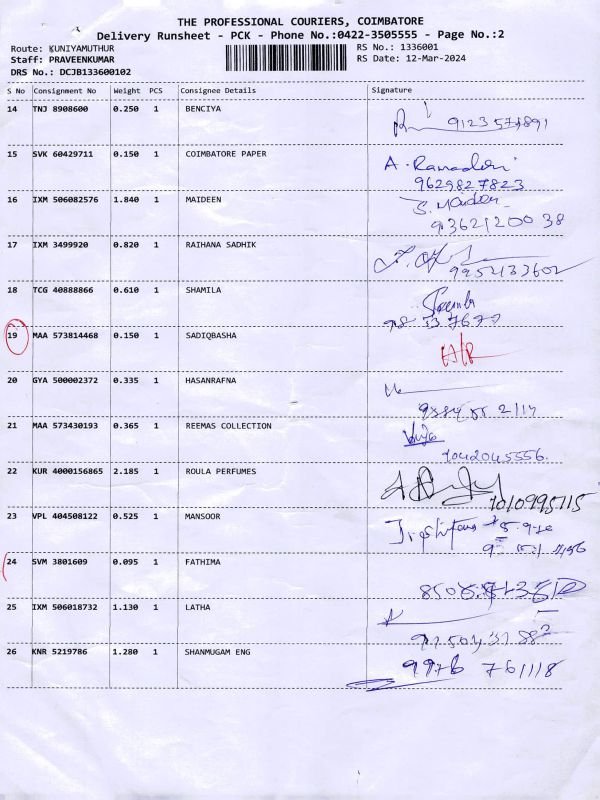 THE PROFESSIONAL COURIERS, COIMBATORE
Delivery Runsheet - PCK - Phone No.:0422-3505555 - Page No.:2
Route: KUNIYAMUTHUR RS No.: 1336001
Staff: PRAVEENKUMAR RS Date: 12-Mar-2024
DRS No.: DCJB133600102
S No Consignment No Weight PCS Consignee Details Signature
14 TNJ 8908600 0.250 1 BENCIYA
15 SVK 60429711 0.150 1 COIMBATORE PAPER
9629827823
16 IXM 506082576 1.840 1 MAIDEEN
17 IXM 3499920 0.820 1 RAIHANA SADHIK
18 TCG 40888866 0.610 1 SHAMILA
19 MAA 573814468 0.150 1 SADIQBASHA
20 GYA 500002372 0.335 1 HASANRAFNA
21 MAA 573430193 0.365 1 REEMAS COLLECTION
22 KUR 4000156865 2.185 1 ROULA PERFUMES
23 VPL 404508122 0.525 1 MANSOOR
24 SVM 3801609 0.095 1 FATHIMA
25 IXM 506018732 1.130 1 LATHA
26 KNR 5219786 1.280 1 SHANMUGAM ENG
9976 761118